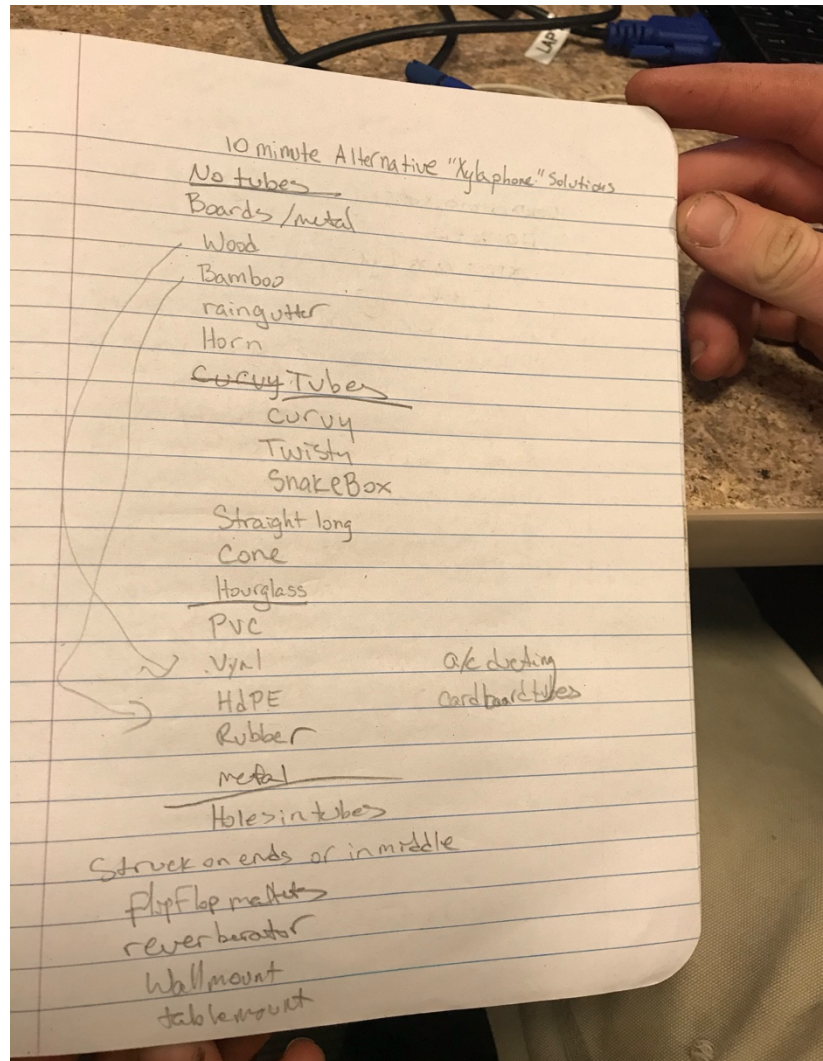 LAP
10 minute Alternative "Xylaphone" Solutions
No tubes
Boards/metal
Wood
Bamboo
raingutter
Horn
Curvy Tubes
curvy
Twisty
SnakeBox
Straight long
Cone
Hourglass
PVC
Vynl a/c ducting
HdPE cardboard tubes
Rubber
metal
Holes in tubes
Struck on ends or in middle
flipFlop mallets
reverberator
Wallmount
tablemount